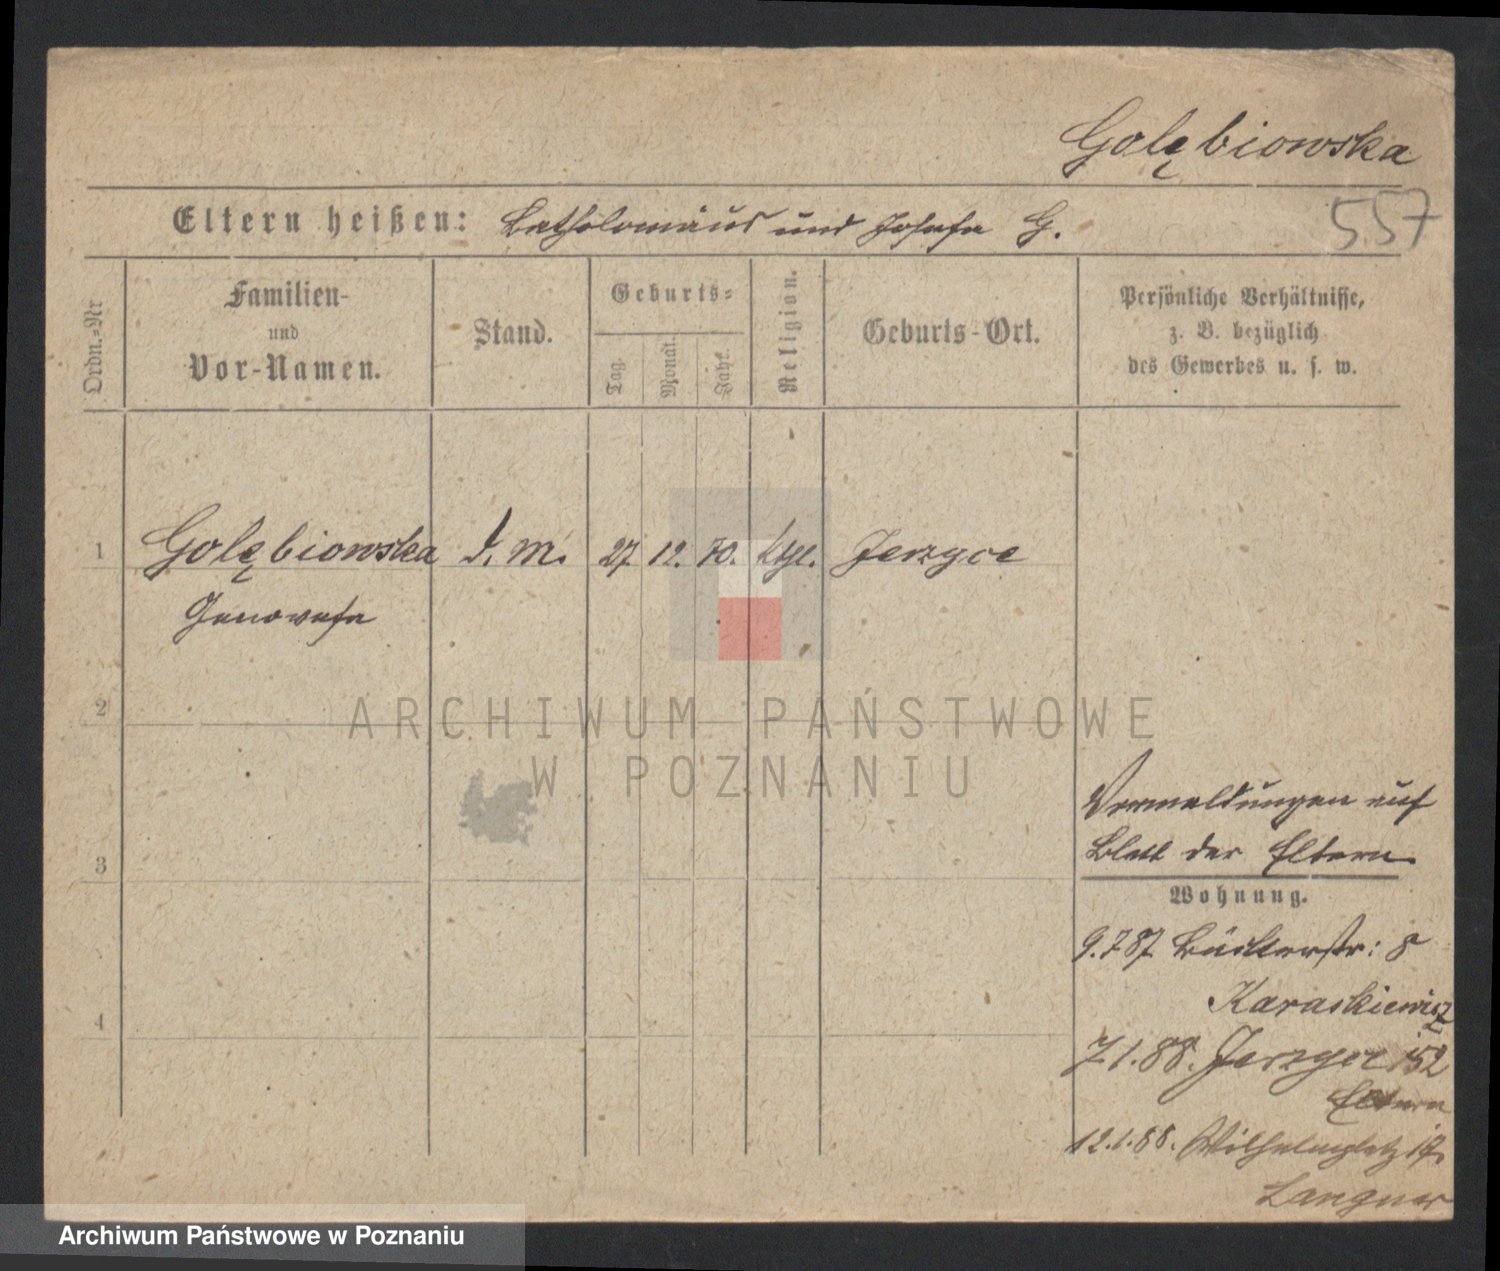 Golębiowska
557
Eltern heißen: Batholomäus und Josefa G.
Ordn.=Nr
Familien-
und
Vor-Namen.
Stand.
Geburts=
Tag.
Monat.
Jahr.
Religion.
Geburts-Ort.
Persönliche Verhältnisse,
z. B. bezüglich
des Gewerbes u. s. w.
1 Golębiowska D. M. 27. 12. 70. ktl. Jerzyce
Genowefa
2
ARCHIWUM PAŃSTWOWE
W POZNANIU
Vermeldungen auf
3 Blatt der Eltern
Wohnung.
9.7 87 Büttelstr: 8
Karaskiewicz
4
7 1.88. Jerzyce 152
Eltern
12.1.88. Wilhelmplatz
Langner
Archiwum Państwowe w Poznaniu